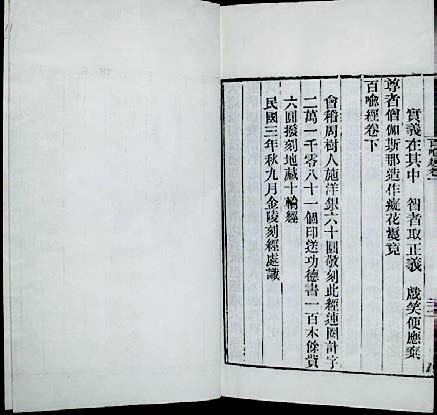 實義在其中　智者取正義　戲笑便應棄
尊者僧伽斯那造作癡花鬘竟
百喻經卷下
會稽周樹人施洋銀六十圓敬刻此經連圈計字
二萬一千零八十一個印送功德書一百本餘貲
六圓撥刻地藏十輪經
民國三年秋九月金陵刻經處識